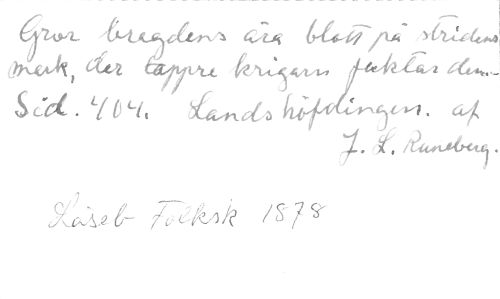 Gror bragdens ära blott på stridens
mark, der tappre krigarn fäktar den..
Sid. 404. Landshöfdingen. af
J. L. Runeberg.
Läseb Folksk 1878